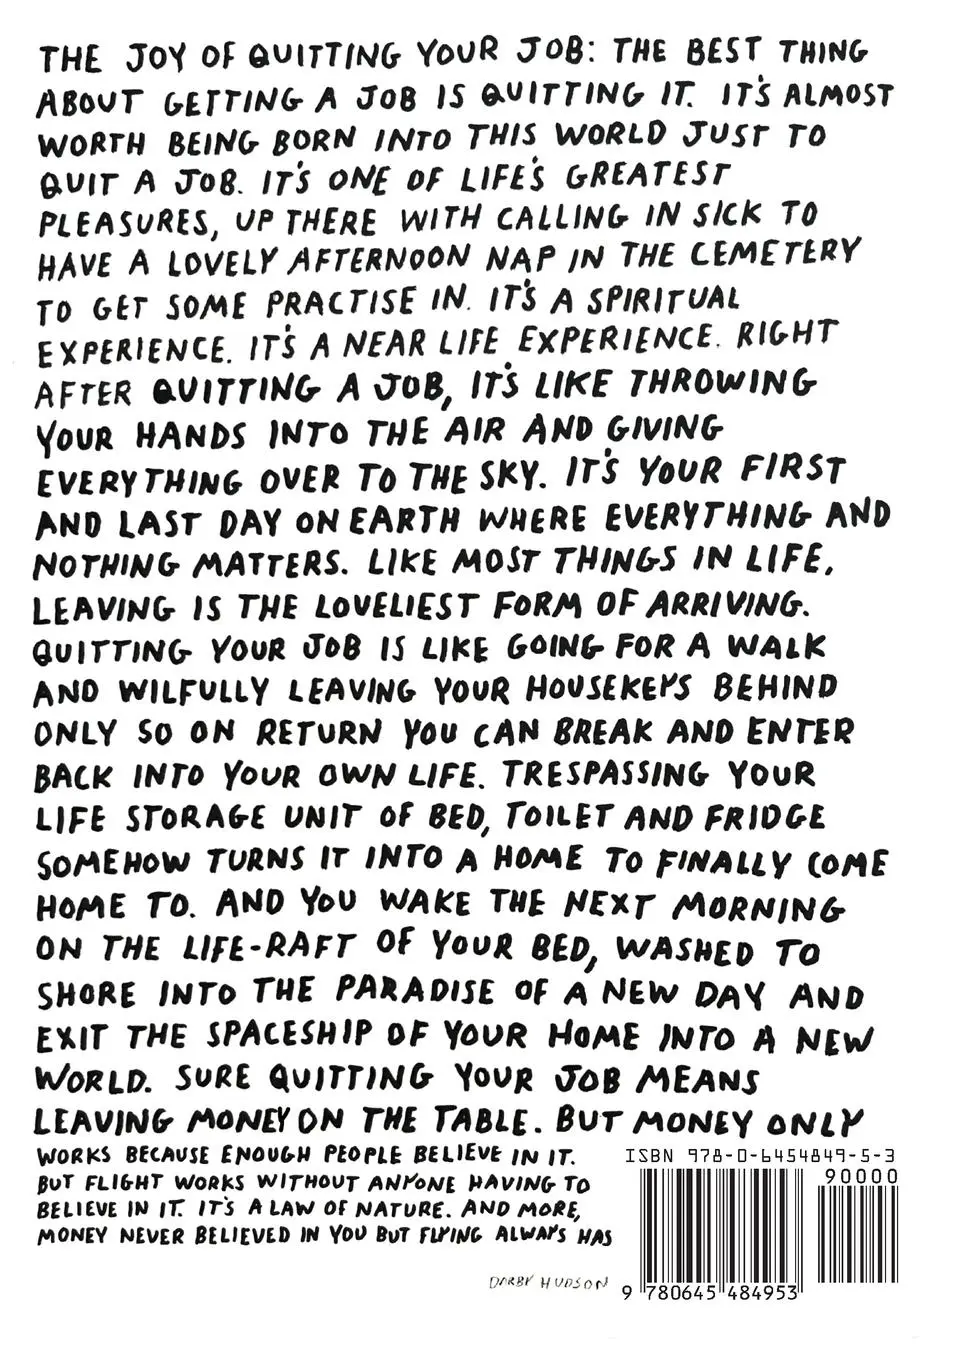 THE JOY OF QUITTING YOUR JOB: THE BEST THING
ABOUT GETTING A JOB IS QUITTING IT. IT'S ALMOST
WORTH BEING BORN INTO THIS WORLD JUST TO
QUIT A JOB. IT'S ONE OF LIFE'S GREATEST
PLEASURES, UP THERE WITH CALLING IN SICK TO
HAVE A LOVELY AFTERNOON NAP IN THE CEMETERY
TO GET SOME PRACTISE IN. IT'S A SPIRITUAL
EXPERIENCE. IT'S A NEAR LIFE EXPERIENCE. RIGHT
AFTER QUITTING A JOB, IT'S LIKE THROWING
YOUR HANDS INTO THE AIR AND GIVING
EVERYTHING OVER TO THE SKY. IT'S YOUR FIRST
AND LAST DAY ON EARTH WHERE EVERYTHING AND
NOTHING MATTERS. LIKE MOST THINGS IN LIFE,
LEAVING IS THE LOVELIEST FORM OF ARRIVING.
QUITTING YOUR JOB IS LIKE GOING FOR A WALK
AND WILFULLY LEAVING YOUR HOUSEKEYS BEHIND
ONLY SO ON RETURN YOU CAN BREAK AND ENTER
BACK INTO YOUR OWN LIFE. TRESPASSING YOUR
LIFE STORAGE UNIT OF BED, TOILET AND FRIDGE
SOMEHOW TURNS IT INTO A HOME TO FINALLY COME
HOME TO. AND YOU WAKE THE NEXT MORNING
ON THE LIFE-RAFT OF YOUR BED, WASHED TO
SHORE INTO THE PARADISE OF A NEW DAY AND
EXIT THE SPACESHIP OF YOUR HOME INTO A NEW
WORLD. SURE QUITTING YOUR JOB MEANS
LEAVING MONEY ON THE TABLE. BUT MONEY ONLY
WORKS BECAUSE ENOUGH PEOPLE BELIEVE IN IT.
BUT FLIGHT WORKS WITHOUT ANYONE HAVING TO
BELIEVE IN IT. IT'S A LAW OF NATURE. AND MORE,
MONEY NEVER BELIEVED IN YOU BUT FLYING ALWAYS HAS
DARBY HUDSON
ISBN 978-0-6454849-5-3
90000
9 780645 484953